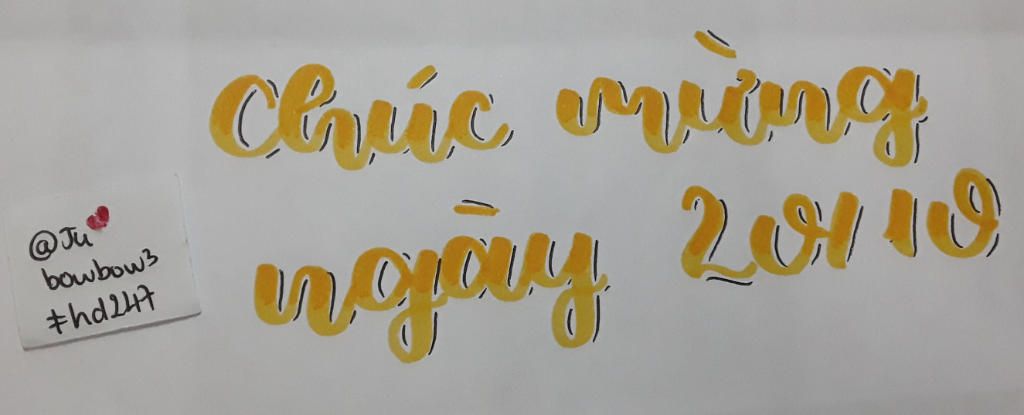 Chúc mừng
ngày 20/10
@Ju
bowbow3
#hd247